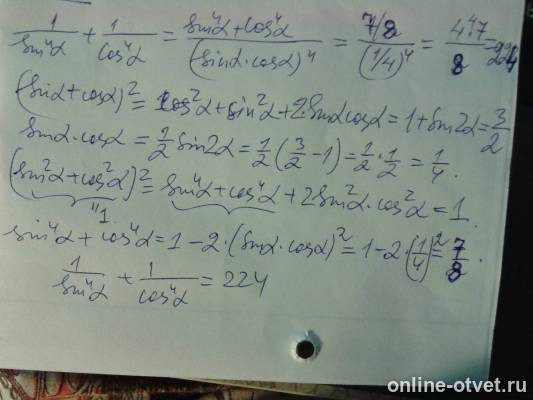 1/sin⁴α + 1/cos⁴α = (sin⁴α + cos⁴α)/(sinα·cosα)⁴ = (7/8)/(1/4)⁴ = 4⁴·7/8 = 224
(sinα+cosα)² = cos²α + sin²α + 2sinαcosα = 1 + sin2α = 3/2
sinα·cosα = 1/2 sin2α = 1/2 (3/2 − 1) = 1/2 · 1/2 = 1/4.
(sin²α + cos²α)² = sin⁴α + cos⁴α + 2sin²α·cos²α = 1
"1
sin⁴α + cos⁴α = 1 − 2·(sinα·cosα)² = 1 − 2·(1/4)² = 7/8.
1/sin⁴α + 1/cos⁴α = 224
online-otvet.ru